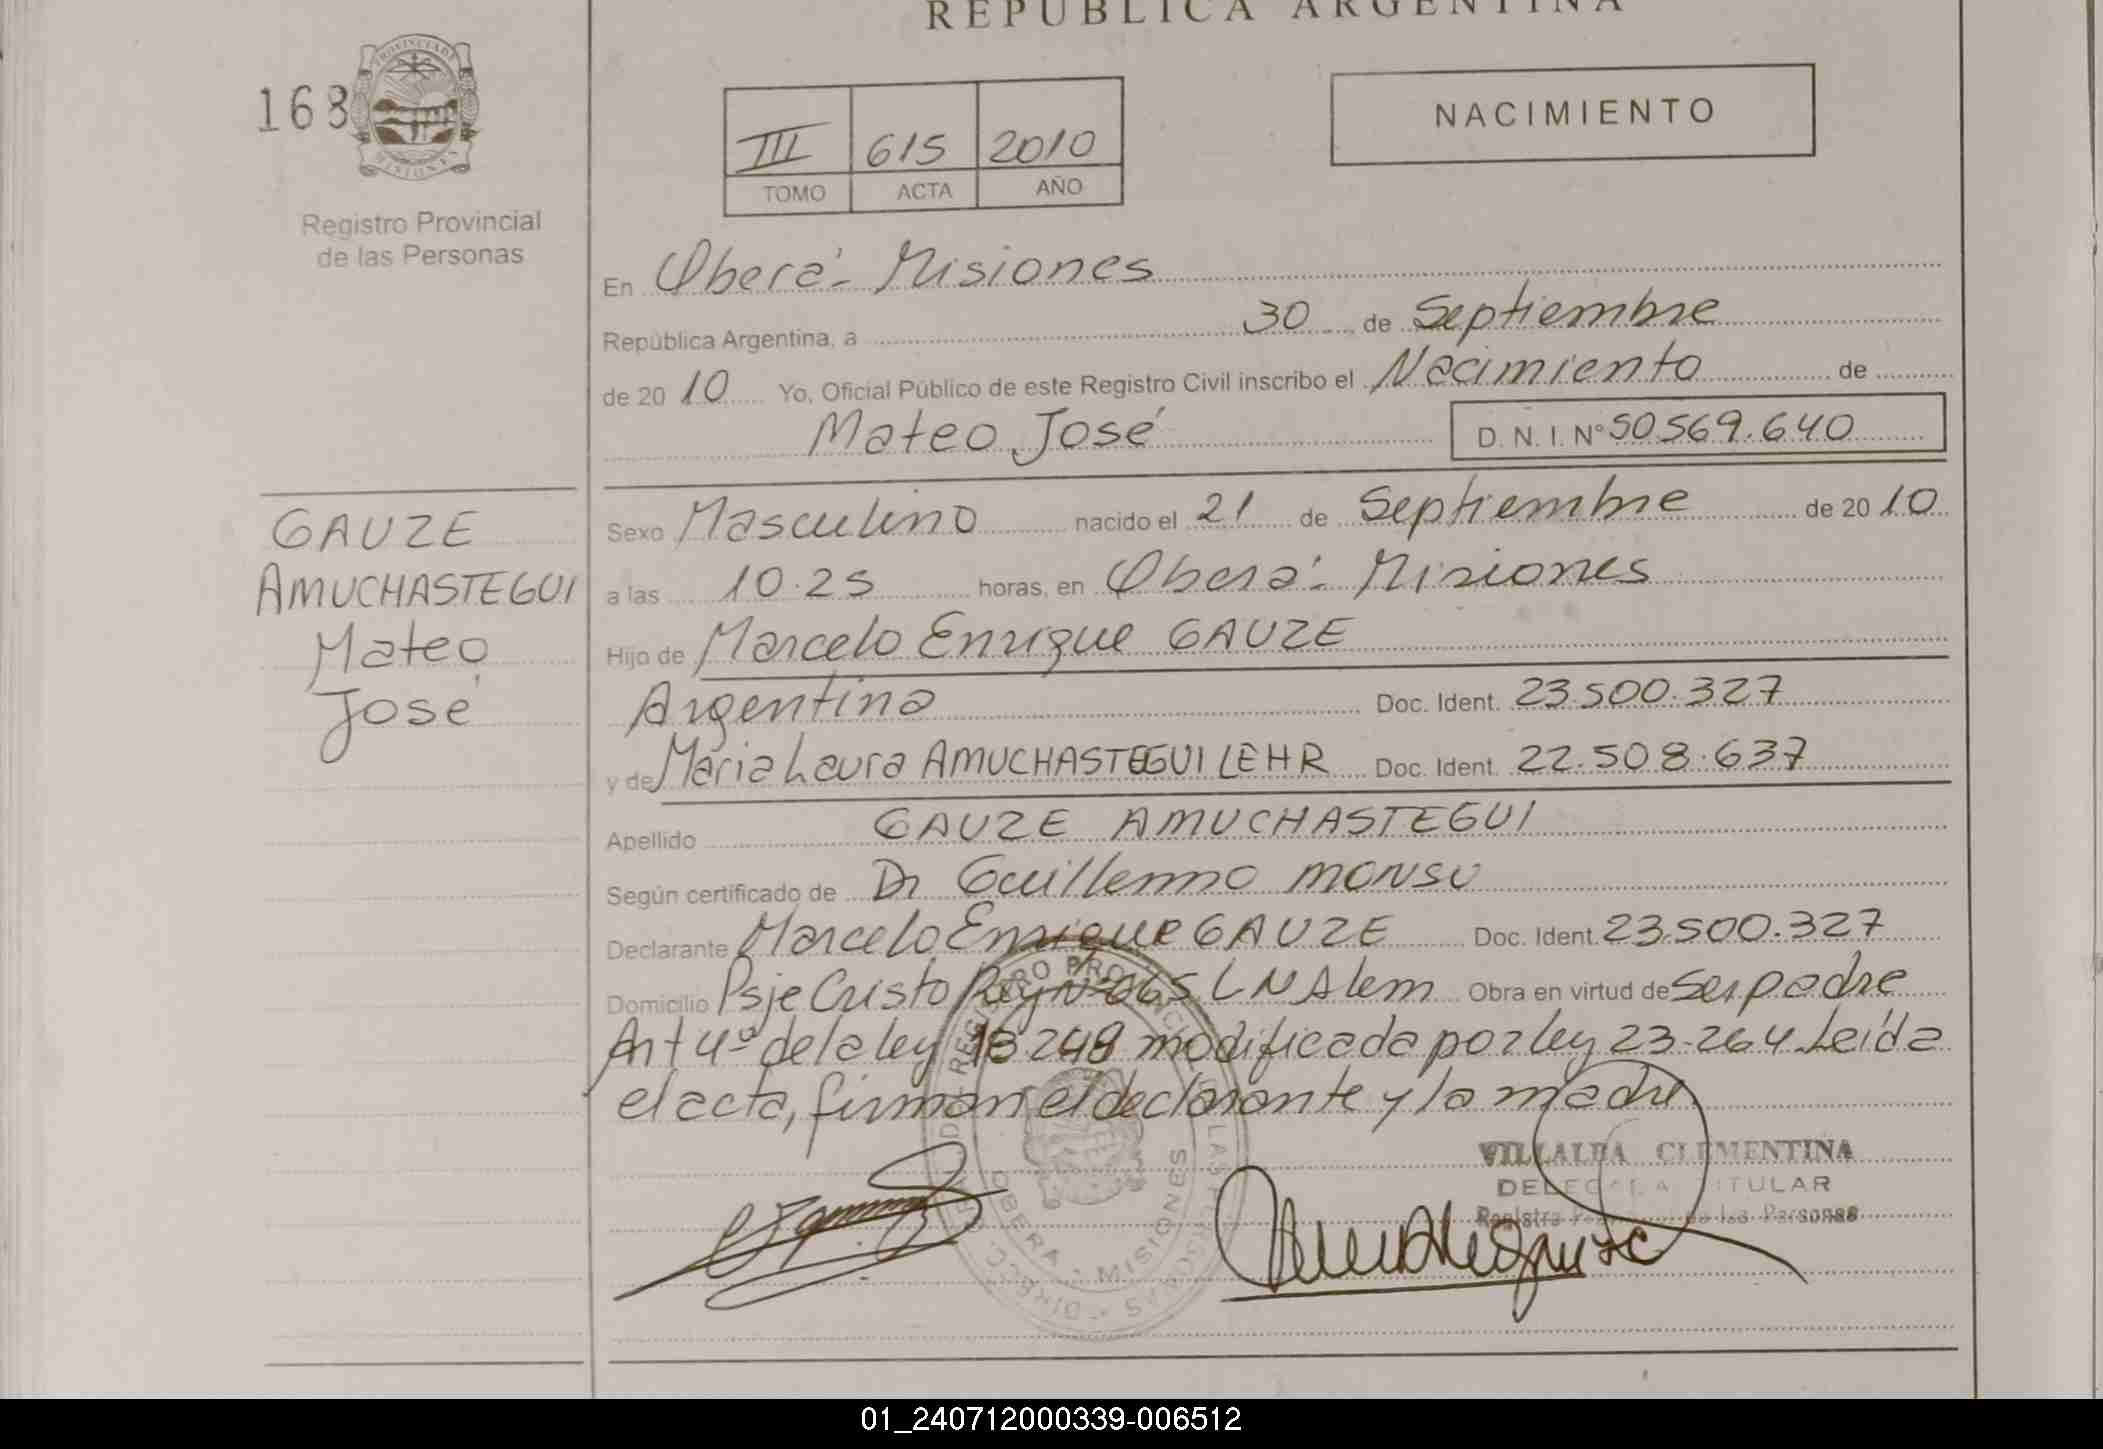 REPUBLICA ARGENTINA
168
PROVINCIA DE
MISIONES
Registro Provincial
de las Personas
III 615 2010
TOMO ACTA AÑO
NACIMIENTO
En Oberá - Misiones
República Argentina, a 30 de Septiembre
de 20 10 Yo, Oficial Público de este Registro Civil inscribo el Nacimiento de
Mateo José D. N. I. Nº 50.569.640
GAUZE
AMUCHASTEGUI
Mateo
José
Sexo Masculino nacido el 21 de Septiembre de 20 10
a las 10.25 horas, en Oberá - Misiones
Hijo de Marcelo Enrique GAUZE
Argentina Doc. Ident. 23.500.327
y de Maria Laura AMUCHASTEGUI LEHR Doc. Ident. 22.508.637
Apellido GAUZE AMUCHASTEGUI
Según certificado de Dr Guillermo MONSU
Declarante Marcelo Enrique GAUZE Doc. Ident. 23.500.327
Domicilio Psje Cristo Rey Nº 065 L N Alem Obra en virtud de Ser padre
Art 4º de la ley 18248 modificada por ley 23.264. Leída
el acta, firman el declarante y la madre
VILLALBA CLEMENTINA
DELEGADA TITULAR
Registro Provincial de las Personas
OBERA - MISIONES
01_240712000339-006512